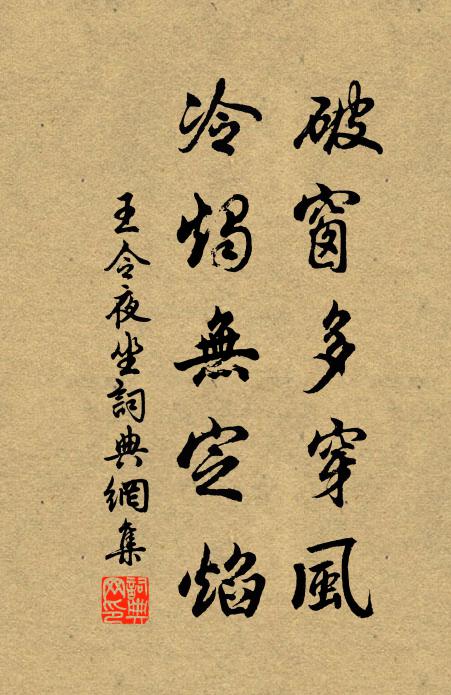 破窗多穿風
冷燭無定焰
王令夜坐詞典網集
詞典
网印